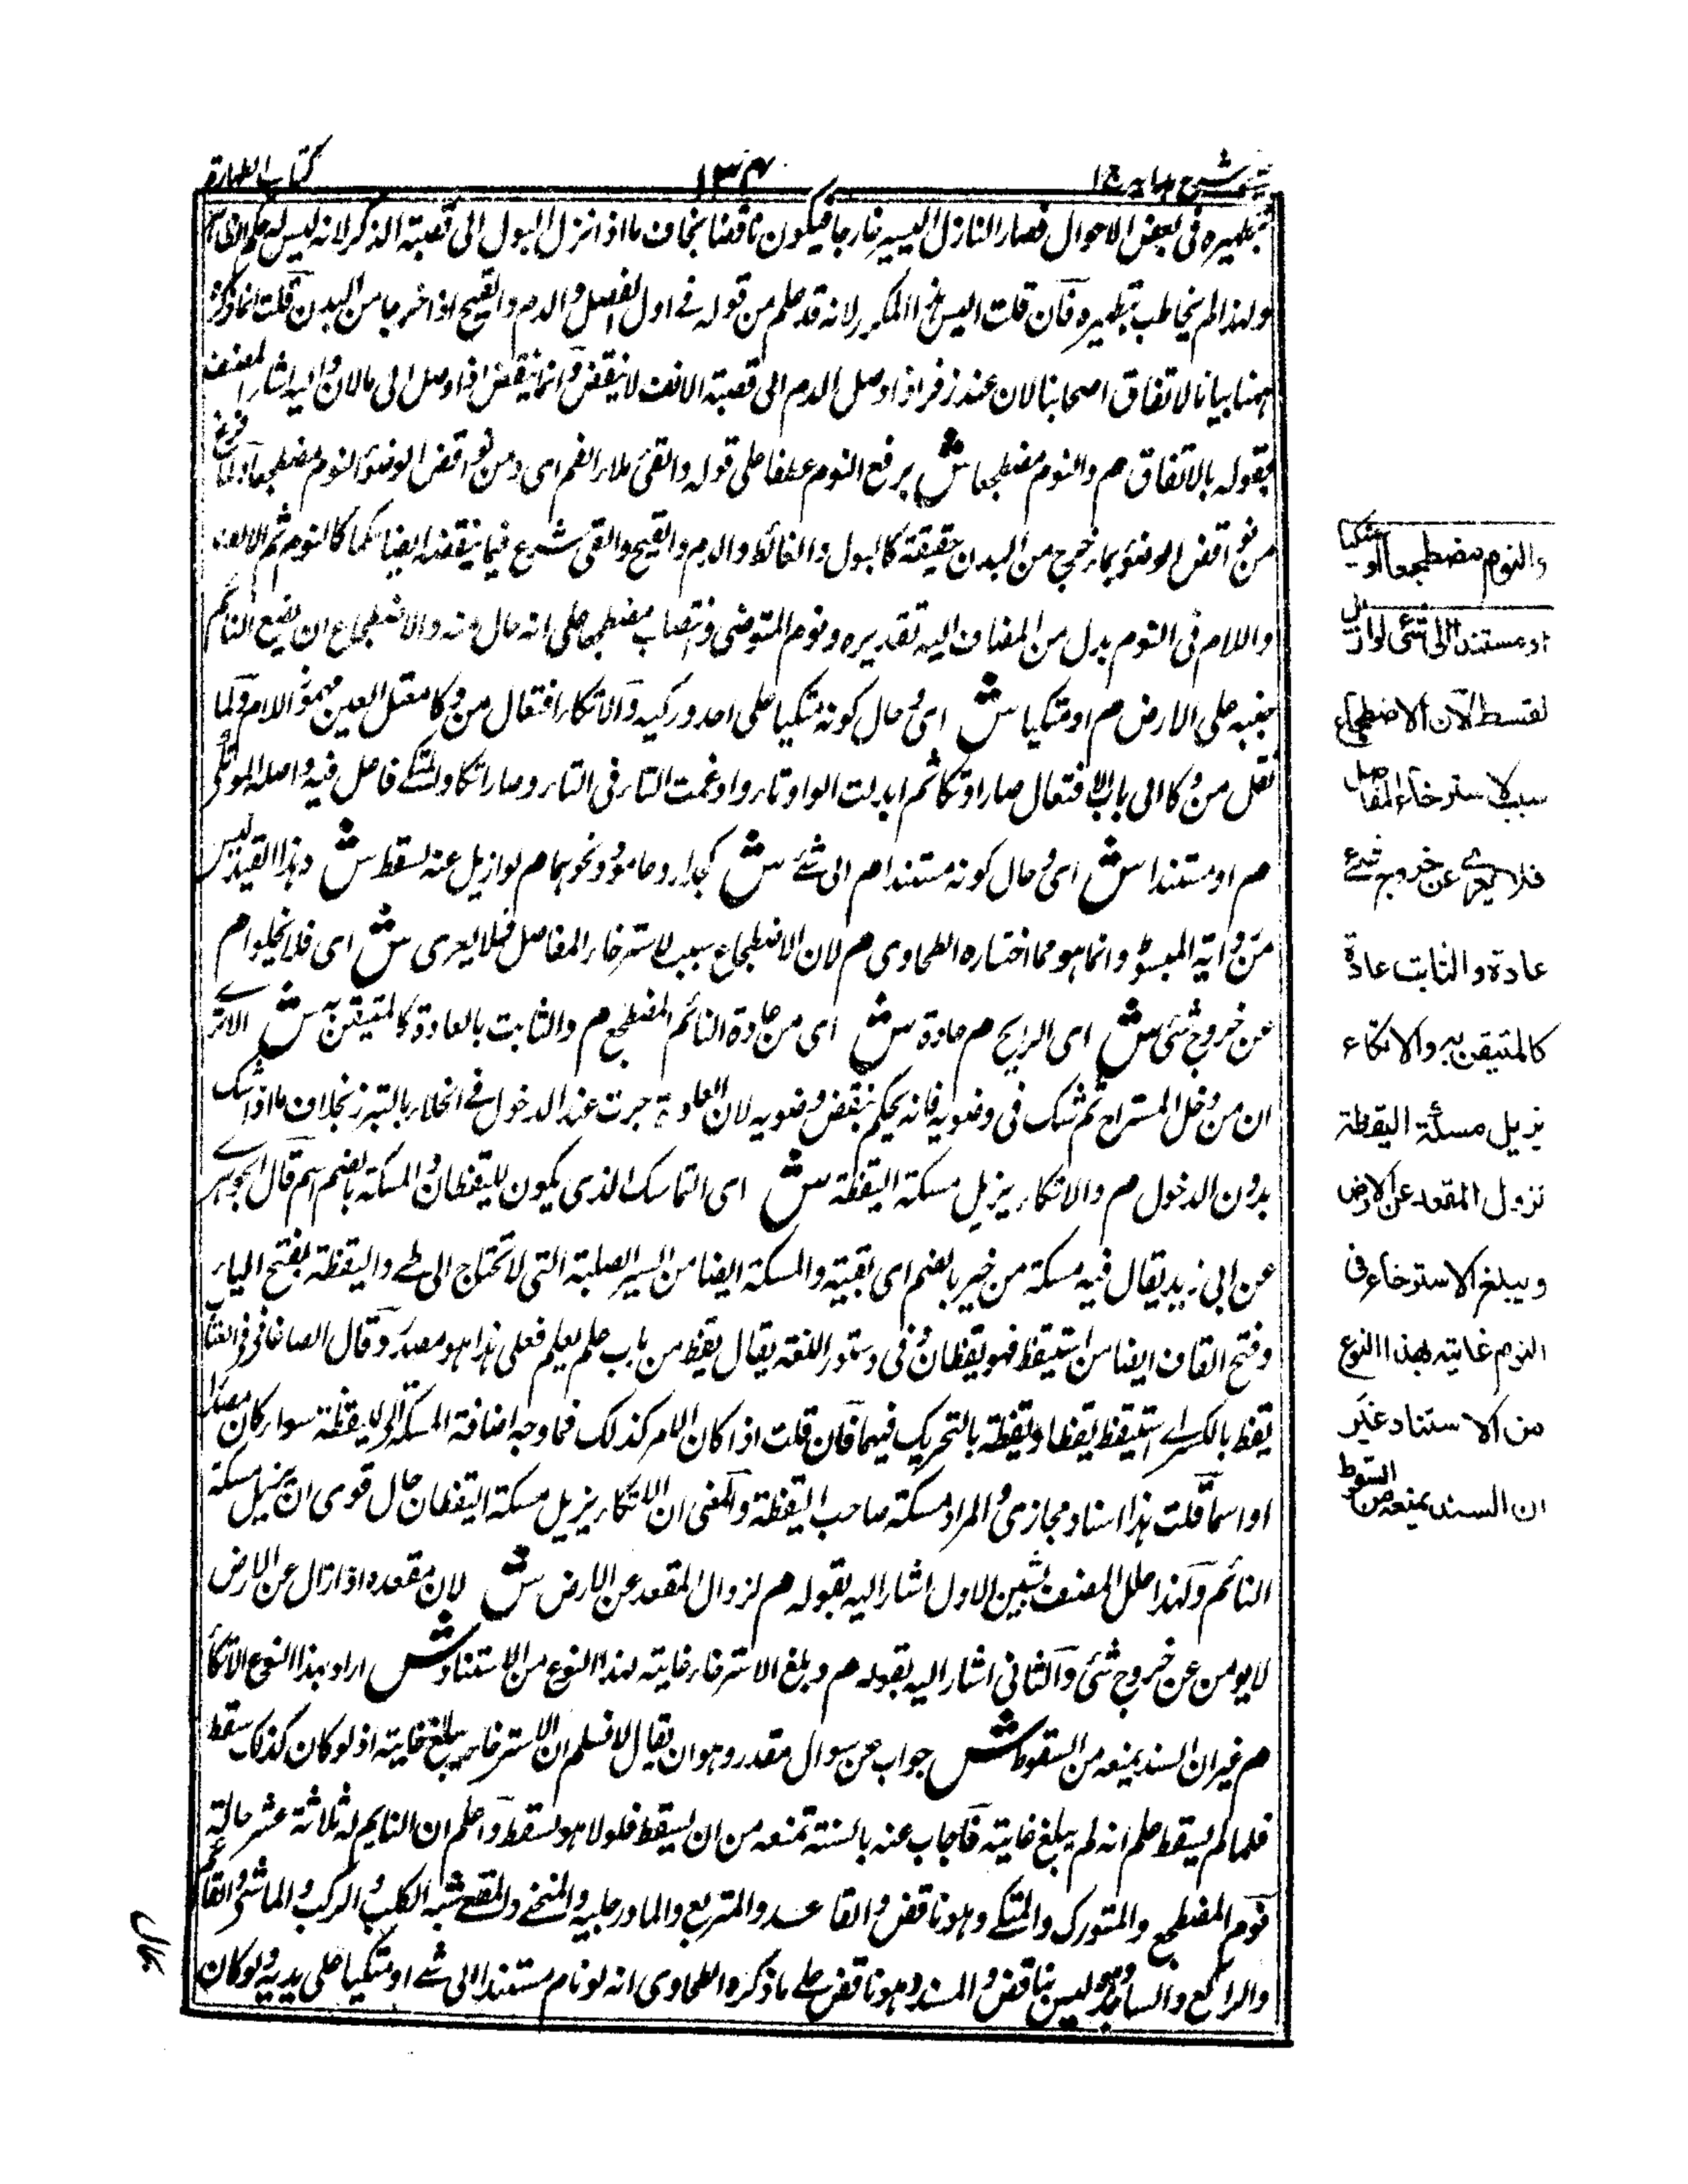 كتاب الطهارة
١٣٤
عينى شرح هدايه ج ١
بتطهيره فى بعض الاحوال فصار النازل اليسير خارجا فيكون ناقضا بخلاف ما اذا نزل البول الى قصبة الذكر لانه ليس له حكم
ولهذا لم يخاطب بتطهيره فان قلت اليس هذا المكرر لانه قد علم من قوله فى اول الفصل والدم والقيح اذا خرجا من البدن قلت انما ذكره
ههنا بيانا لاتفاق اصحابنا لان عند زفر اذا وصل الدم الى قصبة الانف لا ينقض وانما ينقض اذا وصل الى مالان واليه اشار المصنف
بقوله بالاتفاق م والنوم مضطجعا ش برفع النوم عطفا على قوله والقئ ملاء الفم اى ومن نواقض الوضوء النوم مضطجعا ولما فرغ
من نواقض الوضوء بما خرج من البدن حقيقة كالبول والغائط والدم والقيح والقئ شرع فيما ينقضه ايضا حكما كالنوم ثم الالف
واللام فى النوم بدل من المضاف اليه تقديره ونوم المتوضى وانتصاب مضطجعا على انه حال منه والاضطجاع ان يضع النائم
جنبه على الارض م او متكيا ش اى حال كونه متكيا على احد وركيه والاتكاء افتعال من وكا معتل العين مهموز اللام ولما
نقل من وكا الى باب الافتعال صار اوتكا ثم ابدلت الواو تاء وادغمت التاء فى التاء وصار اتكا والمتكى فاعل فيه واصله الموتكى
م او مستندا ش اى حال كونه مستندا م الى شئ ش كجدار وعامود ونحوهما م لو ازيل عنه لسقط ش وهذا القيد ليس
من رواية المبسوط وانما هو مما اختاره الطحاوى م لان الاضطجاع سبب لاسترخاء المفاصل فلا يعرى ش اى فلا يخلو م
عن خروج شئ ش اى الريح م عادة ش اى من عادة النائم المضطجع م والثابت بالعادة كالمتيقن به ش الا ترى
ان من دخل المستراح ثم شك فى وضويه فانه يحكم بنقض وضويه لان العادة جرت عند الدخول فى الخلاء بالتبرز بخلاف ما اذا شك
بدون الدخول م والاتكاء يزيل مسكة اليقظة ش اى التماسك الذى يكون لليقظان والمسكة بالضم اسم قال الجوهرى
عن ابى زيد يقال فيه مسكة من خير بالضم اى بقية والمسكة ايضا من البير الصلبة التى لا تحتاج الى طى واليقظة بفتح الياء
وفتح القاف ايضا من استيقظ فهو يقظان وفى دستور اللغة يقال يقظ من باب علم يعلم فعلى هذا هو مصدر وقال الصاغانى فى العباب
يقظ بالكسر اى استيقظ يقظا ويقظة بالتحريك فيهما فان قلت اذا كان الامر كذلك فما وجه اضافة المسكة الى اليقظة سواء كان مصدرا
او اسما قلت هذا اسناد مجازى والمراد مسكة صاحب اليقظة والمعنى ان الاتكاء يزيل مسكة اليقظان حال قوى ان يزيل مسكة
النائم ولهذا علل المصنف بشيئين الاول اشار اليه بقوله م لزوال المقعد عن الارض ش لان مقعده اذا زال عن الارض
لا يومن عن خروج شئ والثانى اشار اليه بقوله م ويبلغ الاسترخاء غايته بهذا النوع من الاستناد ش اراد بهذا النوع الاتكاء
م غير ان السند يمنعه من السقوط ش جواب عن سوال مقدر وهو ان يقال لا نسلم ان الاسترخاء يبلغ غايته اذ لو كان كذلك سقط
فلما لم يسقط علم انه لم يبلغ غايته فاجاب عنه بالسنة تمنعه من ان يسقط فلولا هو لسقط واعلم ان النايم له ثلاثة عشر حالة
نوم المضطجع والمتورك والمتكى وهو ناقض والقاعد والمتربع والماد رجليه والمنحنى والمقعى شبه الكلب والراكب والماشى والقائم
والراكع والساجد وهو ليس بناقض والمستند وهو ناقض على ما ذكره الطحاوى انه لو نام مستندا الى شئ او متكيا على يديه ولو كان
والنوم مضطجعا او متكيا
او مستندا الى شئ لو ازيل
لسقط لان الاضطجاع
سبب لاسترخاء المفاصل
فلا يعرى عن خروج شئ
عادة والثابت عادة
كالمتيقن به والاتكاء
يزيل مسكة اليقظة
لزوال المقعد عن الارض
ويبلغ الاسترخاء فى
النوم غايته بهذا النوع
من الاستناد غير
ان السند يمنعه من السقوط